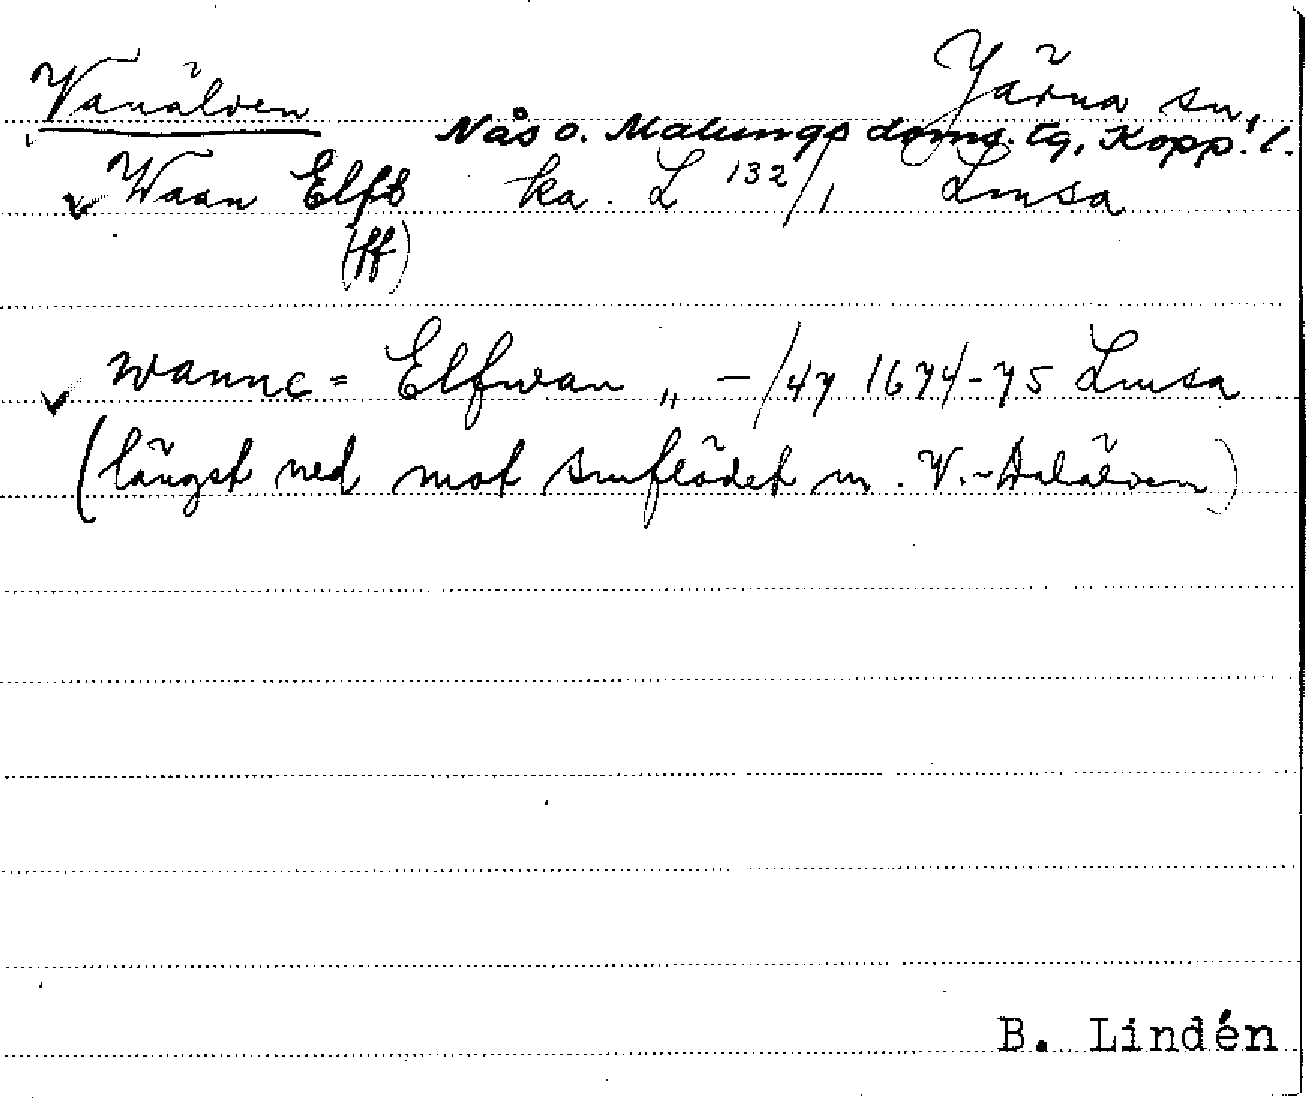 Vanälven
Järna sn,
Nås o. Malungs doms. tg, Kopp. l.
Waan Elfb ka. L 132/1 Lmsa
(ff)
wanne = Elfwan „ - /47 1674-75 Lmsa
(längst ned mot smflödet m. V.-Dalälven)
B. Lindén